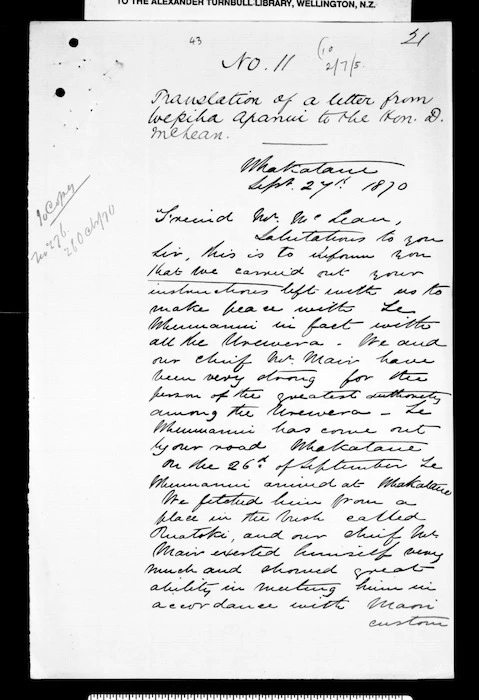 TO THE ALEXANDER TURNBULL LIBRARY, WELLINGTON, N.Z.
43
21
No. 11
2/7/5.
Translation of a letter from
Wepiha Apanui to the Hon. D.
McLean.
Whakatane
Sept. 27th 1870
Friend Mr. McLean,
Salutations to you
Sir, this is to inform you
that we carried out your
instructions left with us to
make peace with Te
Whenuanui in fact with
all the Urewera - We and
our chief Mr. Mair have
been very strong for the
person of the greatest authority
among the Urewera - Te
Whenuanui has come out
by our road Whakatane
On the 26th of September Te
Whenuanui arrived at Whakatane
We fetched him from a
place in the bush called
Ruatoki, and our chief Mr.
Mair exerted himself very
much and showed great
ability in meeting him in
accordance with Maori
custom
Copy
26 Oct/70